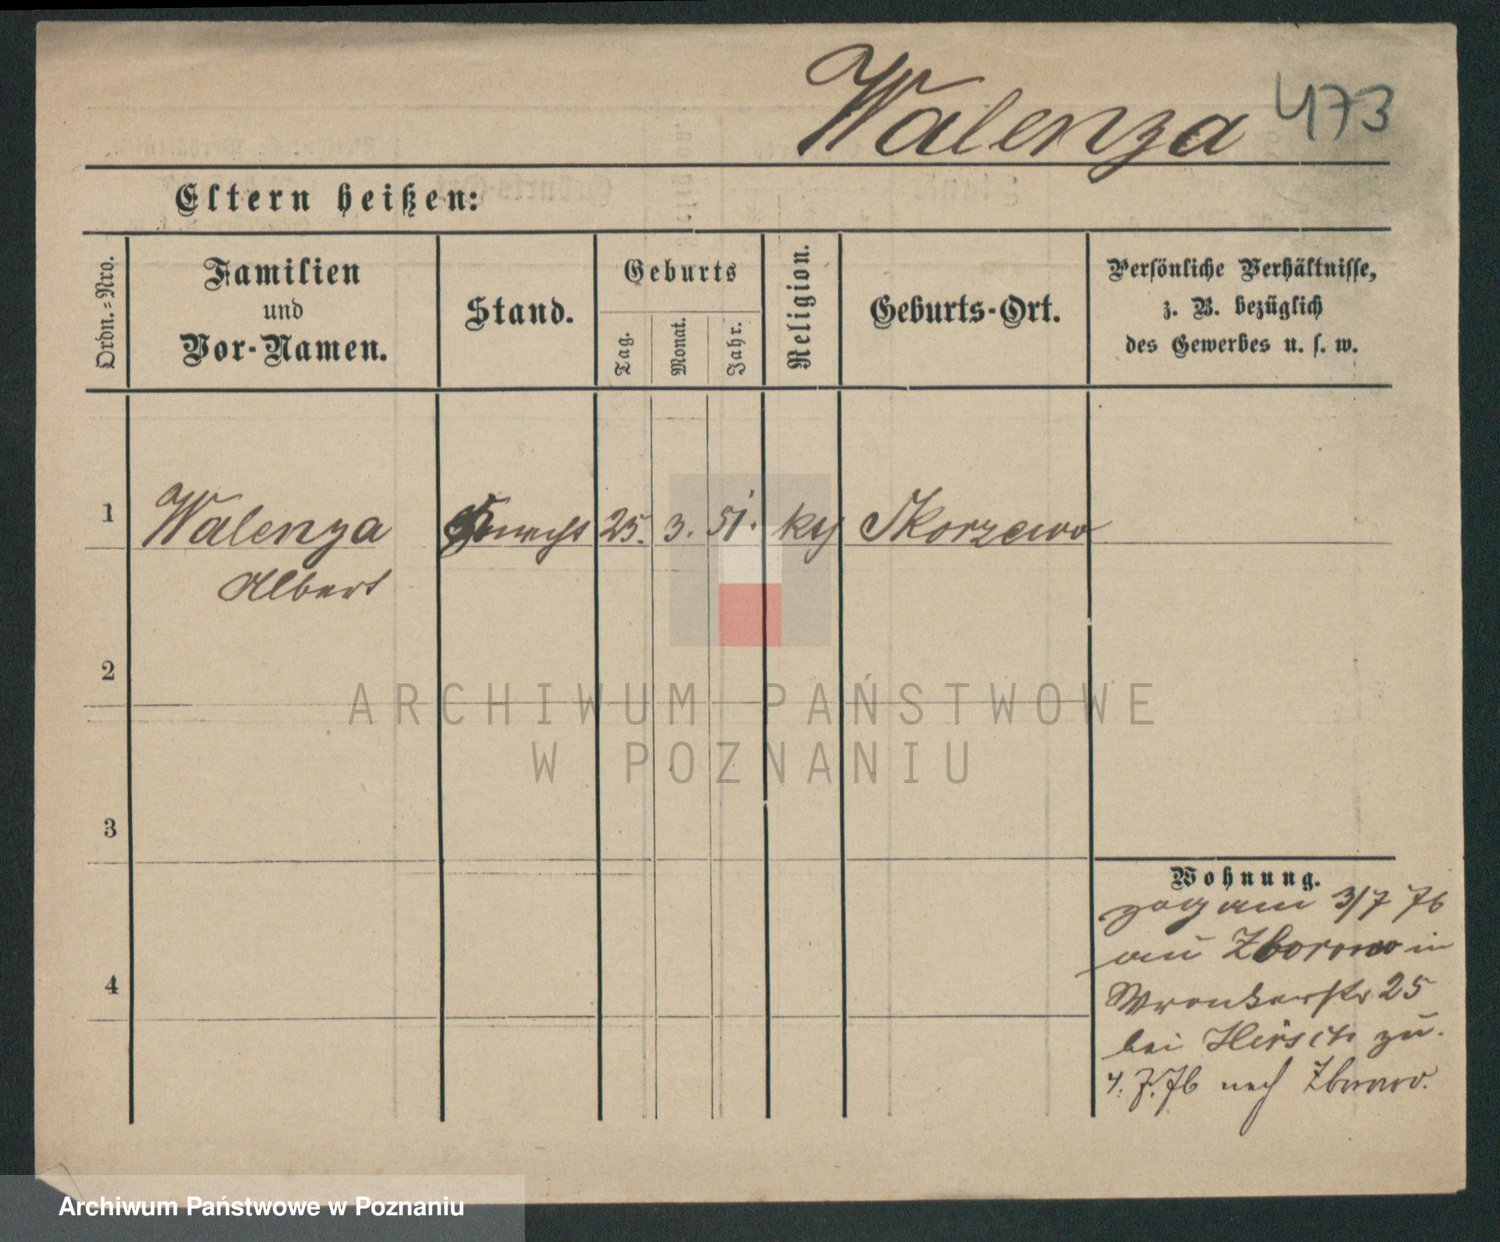 Walenza 473
Eltern heißen:
Ordn.-Nro.
Familien
und
Vor-Namen.
Stand.
Geburts
Tag.
Monat.
Jahr.
Religion.
Geburts-Ort.
Persönliche Verhältnisse,
z. B. bezüglich
des Gewerbes u. s. w.
1 Walenza Knecht 25. 3. 51. kth Skorzewo
Albert
2
3
4
Wohnung.
zog am 3/7 76
aus Zborowo in
Wronkerstr 25
bei Hirsch zu.
4. 7. 76 nach Zborowo.
ARCHIWUM PAŃSTWOWE
W POZNANIU
Archiwum Państwowe w Poznaniu